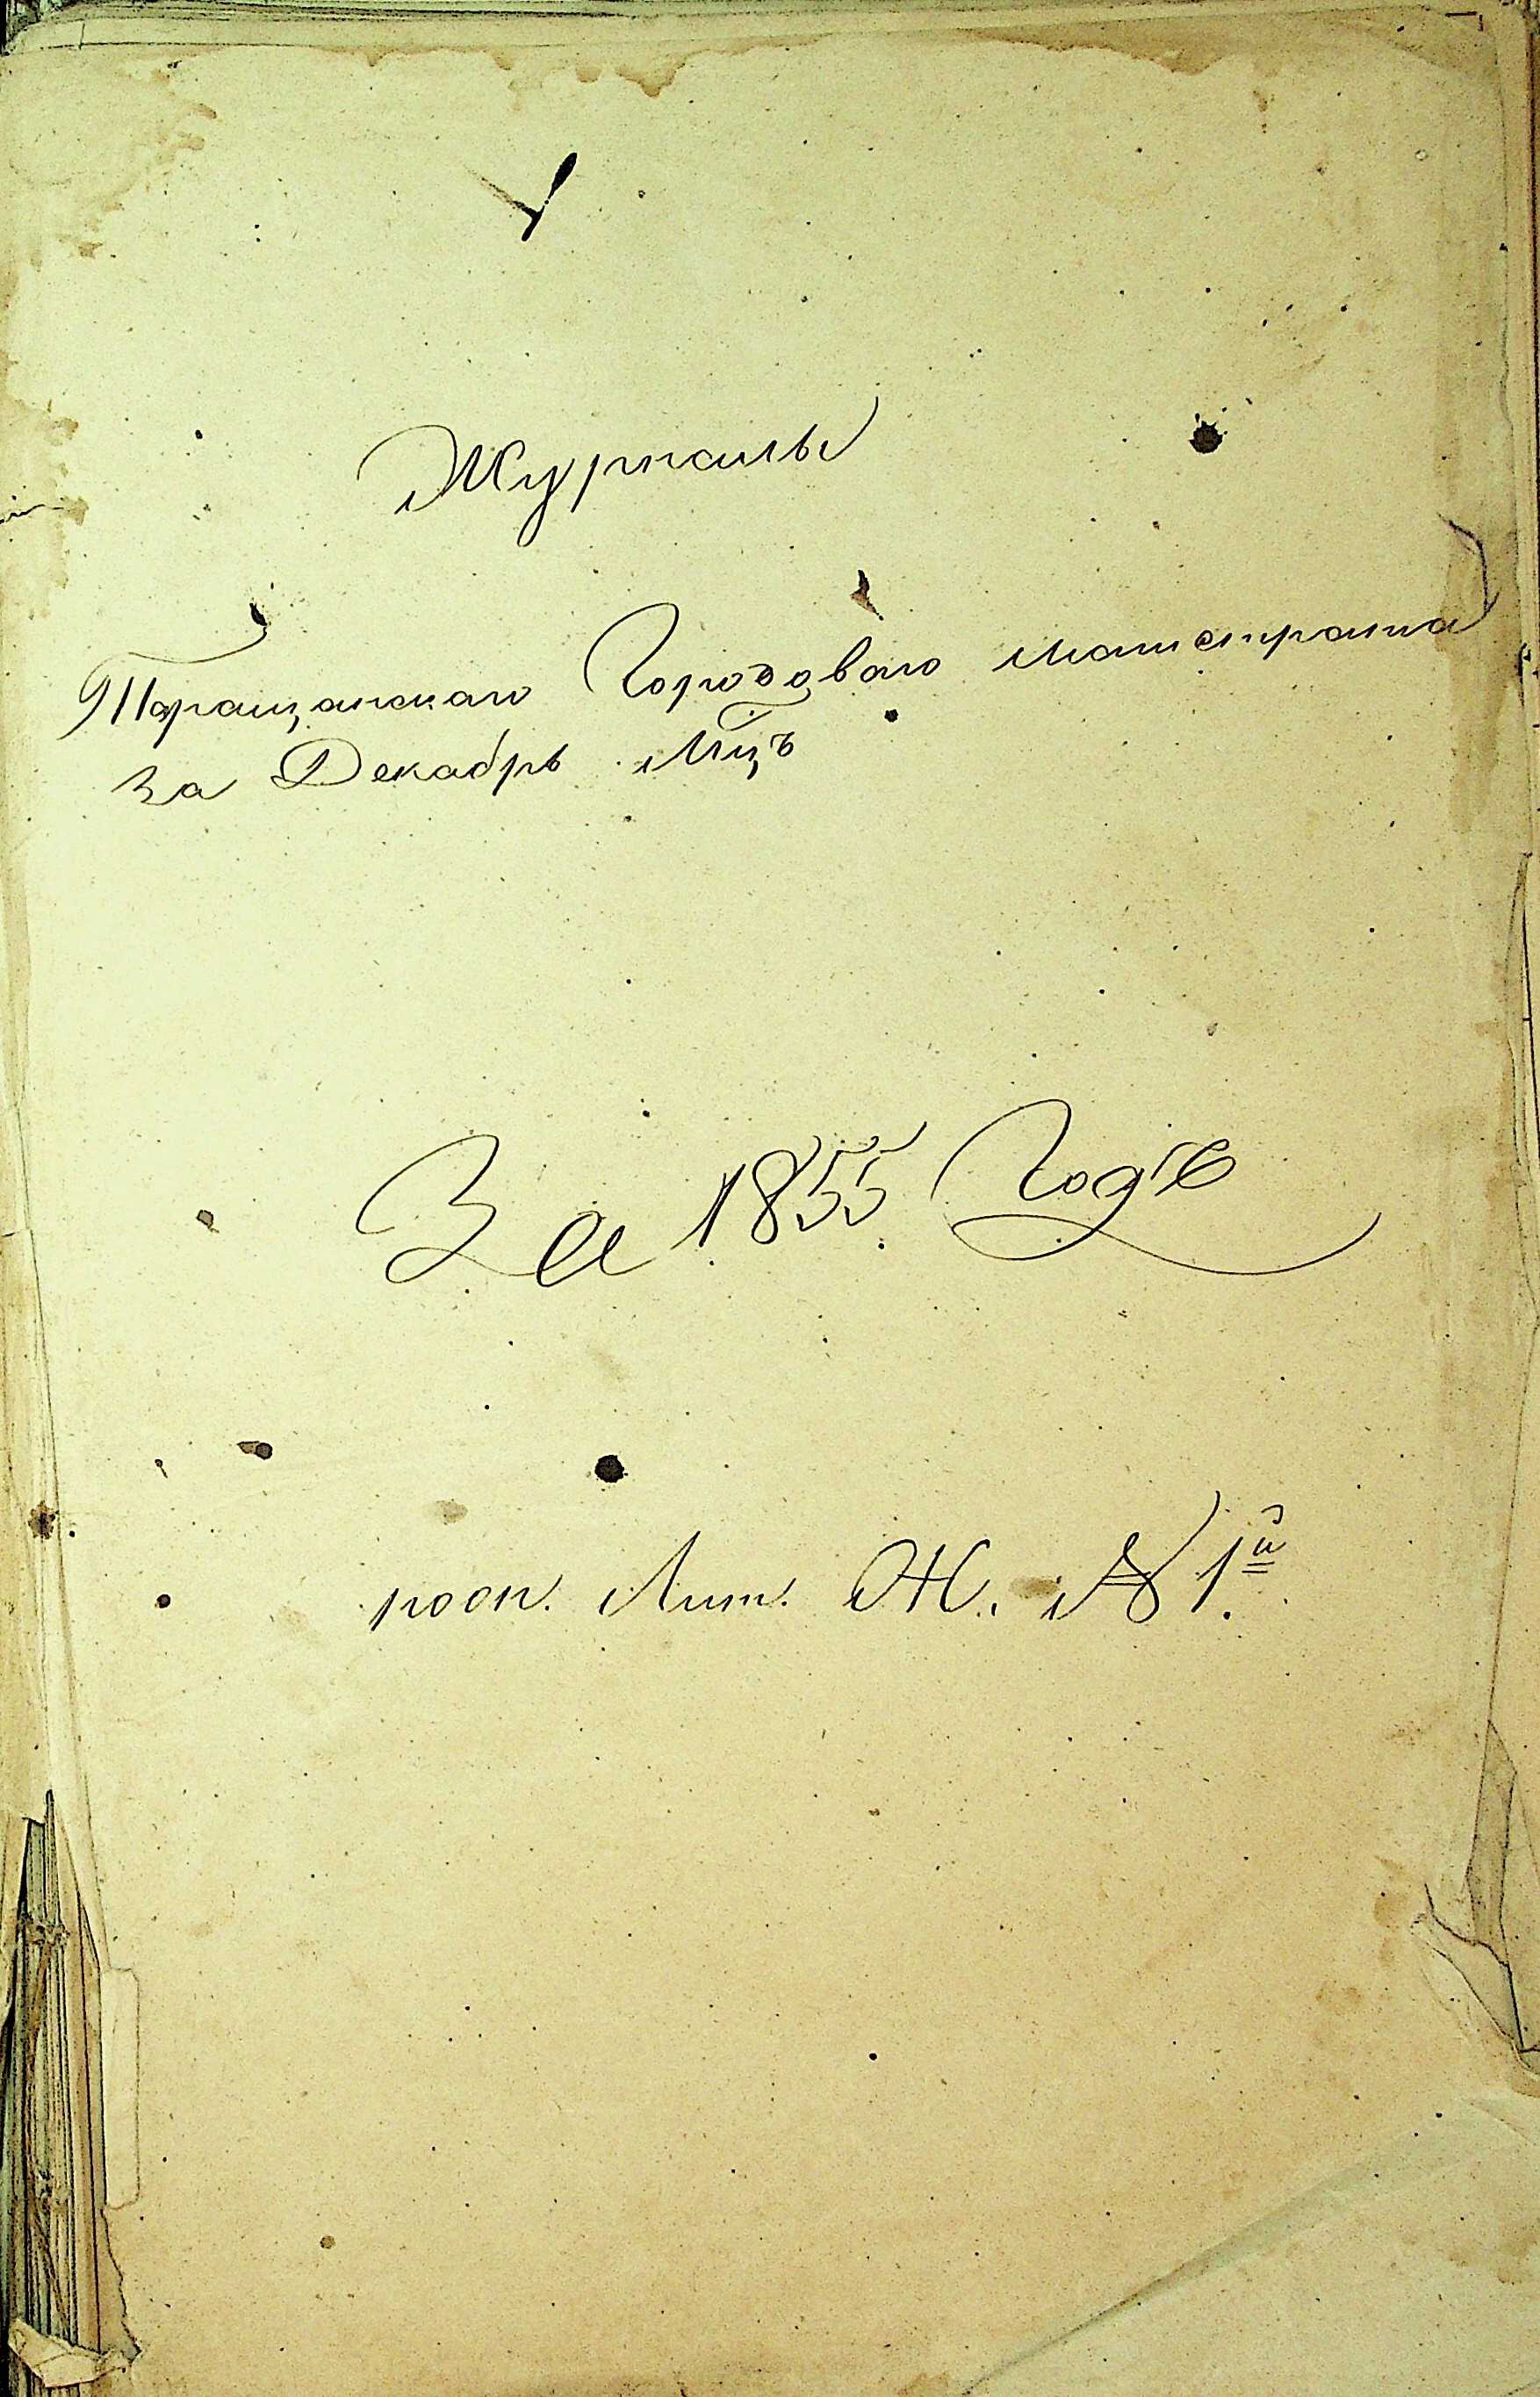 Журналы
Таращанскаго Городоваго магистрата
за Декабрь Мцъ
За 1855 Годъ
росп. Лит. Ж. № 1й